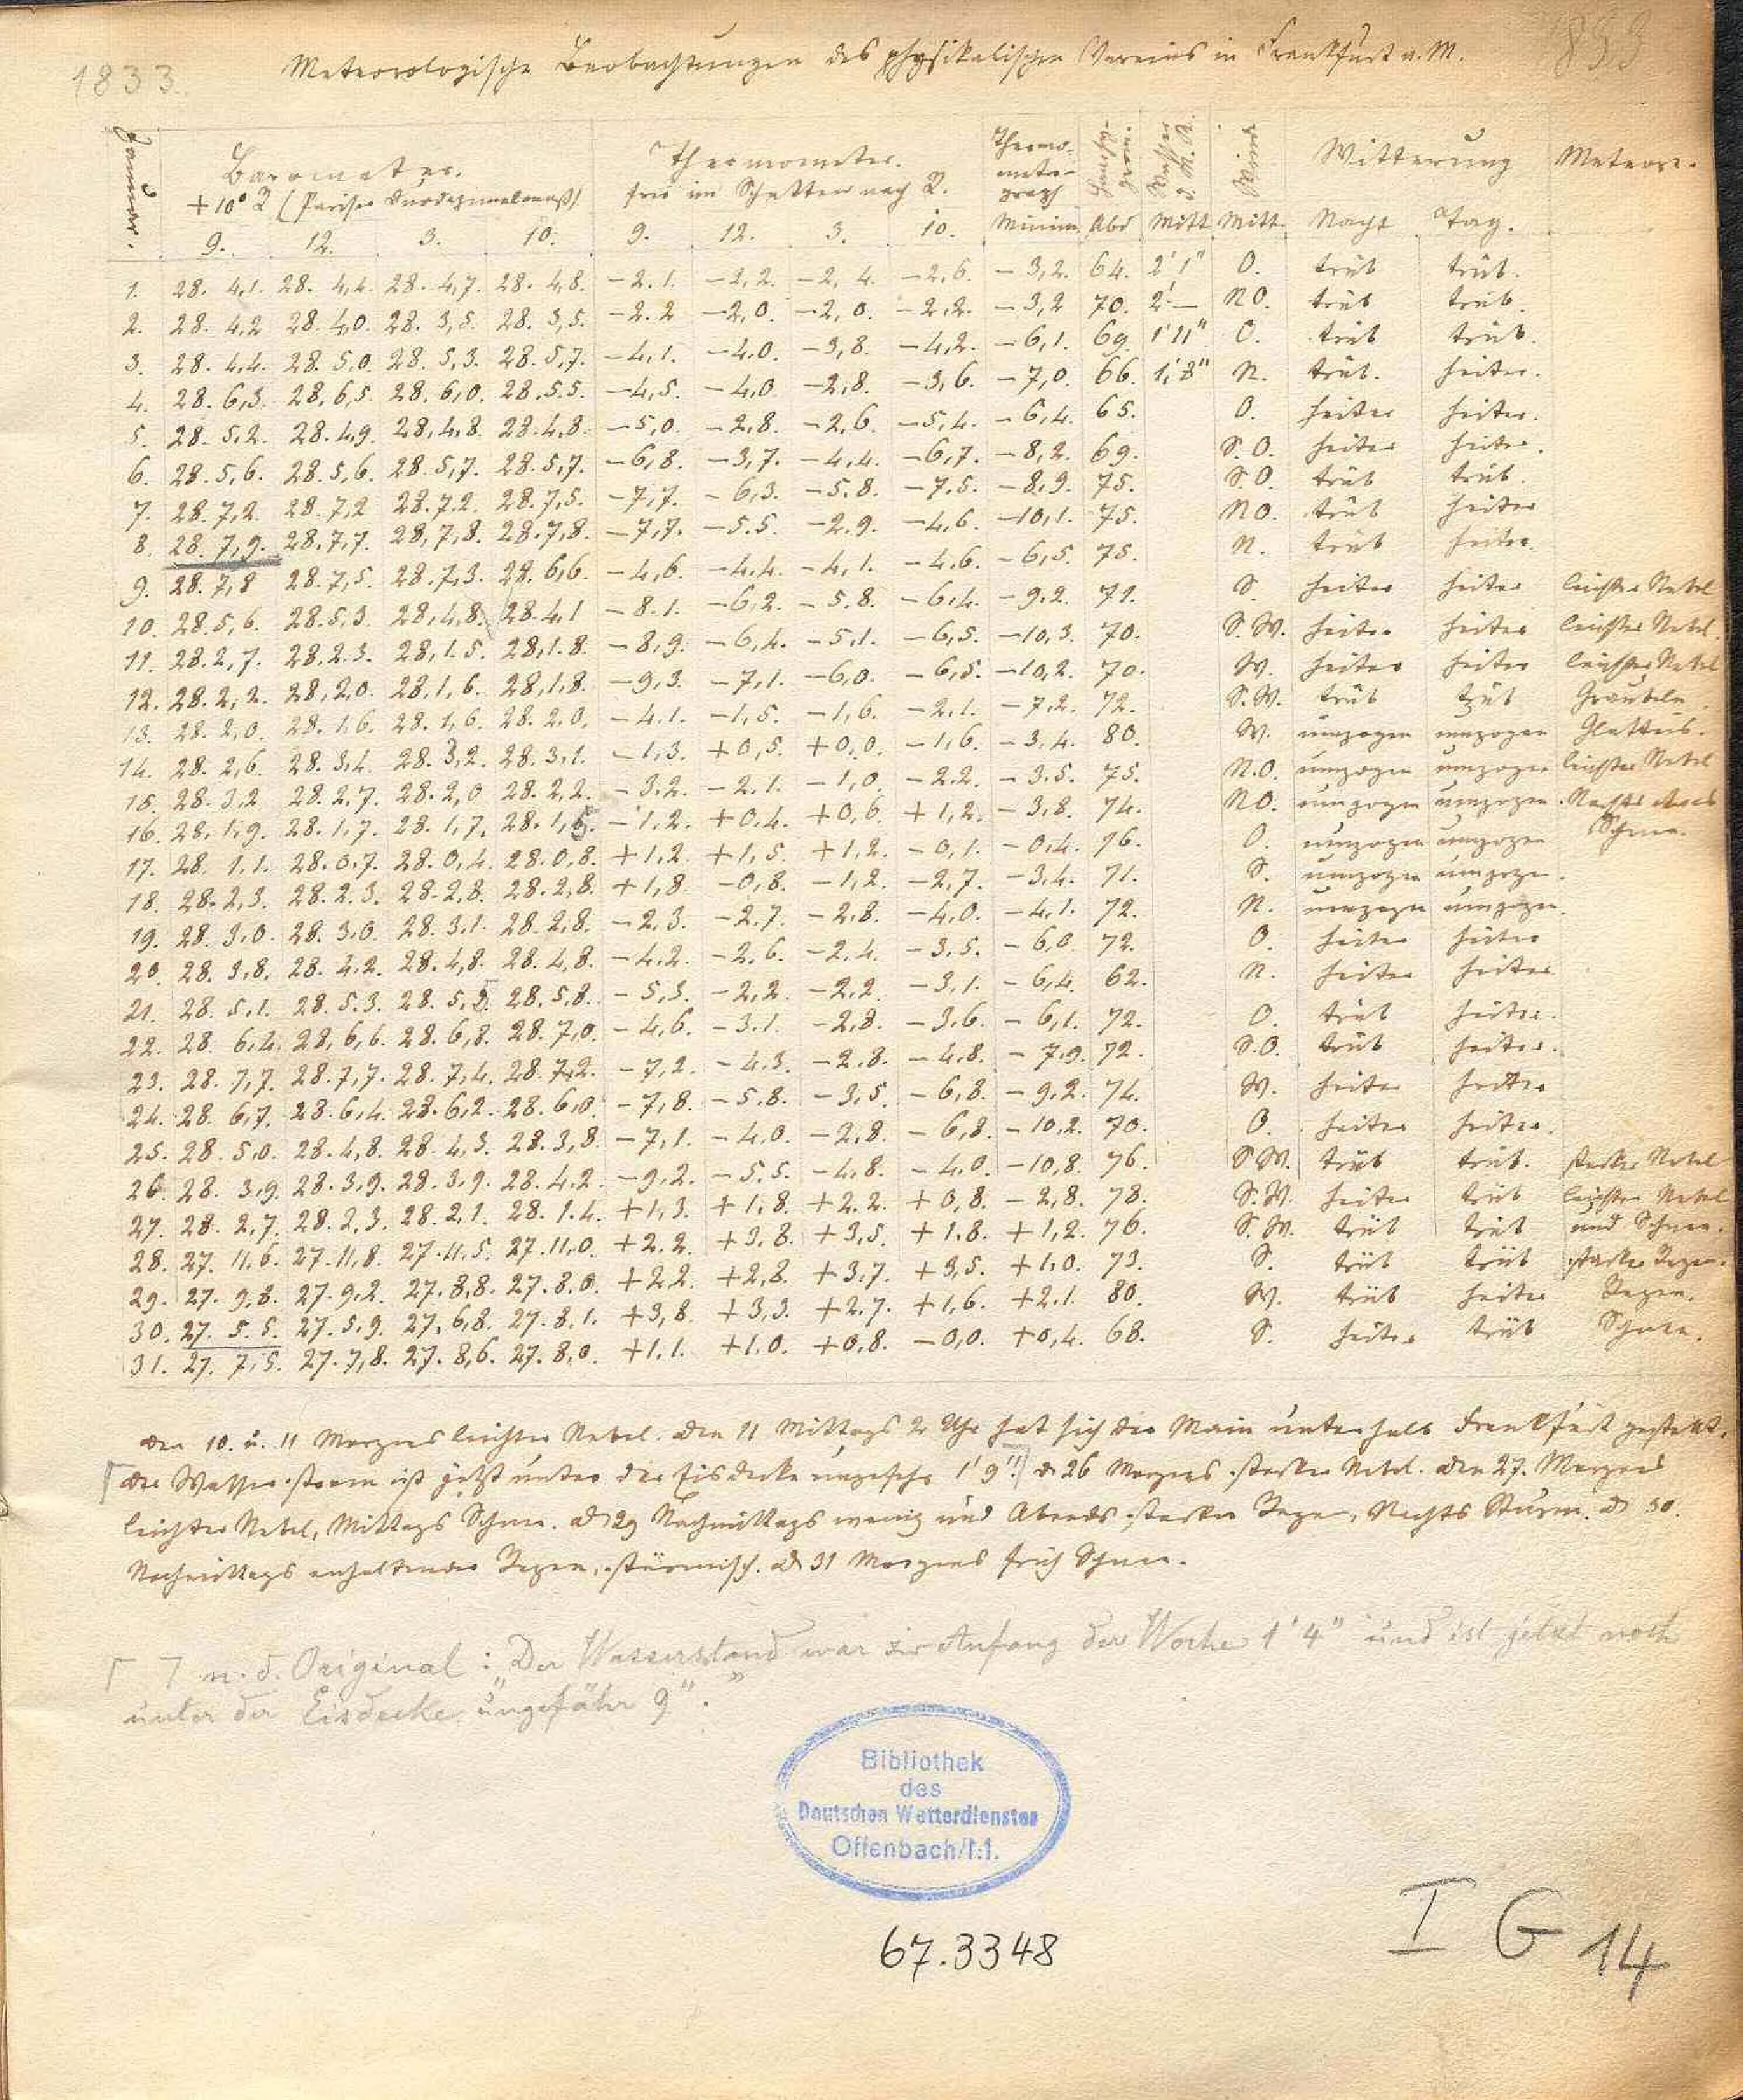 1833.
1833
Meteorologische Beobachtungen des physikalischen Vereins in Frankfurt a. M.
Januar. Barometer. Thermometer. Thermo-metro-graph Wind Witterung Meteore.
+10° R (Pariser Duodezimalmaaß) frei im Schatten nach R.
9. 12. 3. 10. 9. 12. 3. 10. Minim. Abd Mitt Mitt Nacht Tag.
1. 28. 4,1. 28. 4,4. 28. 4,7. 28. 4,8. -2.1. -2,2. -2,4. -2,6. -3,2. 64. 2' 1" O. trüb trüb.
2. 28. 4,2 28. 4,0. 28. 3,5. 28. 3,5. -2.2 -2,0. -2,0. -2,2. -3,2 70. 2' — NO. trüb trüb.
3. 28. 4,4. 28. 5,0. 28. 5,3. 28. 5,7. -4,1. -4,0. -3,8. -4,2. -6,1. 69. 1' 11" O. trüb trüb.
4. 28. 6,3. 28. 6,5. 28. 6,0. 28. 5.5. -4,5. -4,0 -2,8. -3,6. -7,0. 66. 1' 8" N. trüb. heiter.
5. 28. 5,2. 28. 4,9. 28. 4,8. 28. 4,8. -5,0. -2,8. -2,6. -5,4. -6,4. 65. O. heiter heiter.
6. 28. 5,6. 28. 5,6. 28. 5,7. 28. 5,7. -6,8. -3,7. -4,4. -6,7. -8,2. 69. S. O. heiter heiter.
7. 28. 7,2. 28. 7,2 28. 7.2. 28. 7,5. -7,7. -6,3. -5.8. -7,5. -8,9. 75. S. O. trüb trüb.
8. 28. 7,9. 28. 7,7. 28. 7,8. 28. 7,8. -7,7. -5.5. -2.9. -4,6. -10,1. 75. NO. trüb heiter
9. 28. 7,8 28. 7,5. 28. 7,3. 28. 6,6. -4,6. -4.4. -4,1. -4.6. -6,5. 75. N. trüb heiter.
10. 28. 5,6. 28. 5.3. 28. 4,8. 28. 4,1 -8.1. -6,2. -5.8. -6,4. -9.2. 71. S. heiter heiter leichter Nebel
11. 28. 2,7. 28. 2.3. 28. 1.5. 28. 1.8. -8,9. -6,4. -5,1. -6,5. -10,3. 70. S. W. heiter heiter leichter Nebel.
12. 28. 2,2. 28. 2.0. 28. 1,6. 28. 1,8. -9,3. -7,1. -6,0. -6,5. -10,2. 70. W. heiter heiter leichter Nebel
13. 28. 2,0. 28. 1,6. 28. 1,6. 28. 2.0. -4.1. -1,5. -1,6. -2,1. -7,2. 72. S. W. trüb trüb Graubeln.
14. 28. 2,6. 28. 3,4. 28. 3,2. 28. 3,1. -1,3. +0,5. +0,0. -1,6. -3,4. 80. W. umzogen umzogen Glatteis.
15. 28. 3.2 28. 2,7. 28. 2,0 28. 2,2. -3.2. -2.1. -1,0. -2.2. -3.5. 75. N. O. umzogen umzogen leichter Nebel
16. 28. 1,9. 28. 1,7. 28. 1,7. 28. 1,5. -1,2. +0.4. +0,6. +1,2. -3,8. 74. NO. umzogen umzogen. Nachts etwas
17. 28. 1,1. 28. 0,7. 28. 0,4. 28. 0,8. +1,2. +1,5. +1,2. -0,1. -0,4. 76. O. umzogen umzogen Schnee.
18. 28. 2,3. 28. 2.3. 28. 2,8. 28. 2,8. +1,8. -0,8. -1,2. -2,7. -3,4. 71. S. umzogen umzogen.
19. 28. 3,0. 28. 3.0. 28. 3,1. 28. 2,8. -2,3. -2,7. -2,8. -4,0. -4,1. 72. N. umzogen umzogen.
20. 28. 3,8. 28. 4.2. 28. 4,8. 28. 4,8. -4.2. -2.6. -2.4. -3,5. -6,0. 72. O. heiter heiter
21. 28. 5,1. 28. 5.3. 28. 5,5. 28. 5,8. -5,3. -2,2. -2,2. -3,1. -6,4. 62. N. heiter heiter
22. 28. 6,4. 28. 6,6. 28. 6,8. 28. 7,0. -4,6. -3.1. -2,8. -3,6. -6,1. 72. O. trüb heiter.
23. 28. 7,7. 28. 7,7. 28. 7,4. 28. 7,2. -7,2. -4.3. -2.8. -4.8. -7,9. 72. S. O. trüb heiter.
24. 28. 6,7. 28. 6,4. 28. 6,2. 28. 6,0. -7,8. -5.8. -3,5. -6,8. -9,2. 74. W. heiter heiter
25. 28. 5,0. 28. 4,8. 28. 4,3. 28. 3,8. -7,1. -4.0. -2,8. -6,8. -10,2. 70. O. heiter heiter.
26. 28. 3,9. 28. 3,9. 28. 3,9. 28. 4.2. -9,2. -5.5. -4,8. -4.0. -10,8. 76. S W. trüb trüb. starker Nebel
27. 28. 2,7. 28. 2,3. 28. 2,1. 28. 1.4. +1,3. +1,8. +2.2. +0,8. -2,8. 78. S. W. heiter trüb leichter Nebel
28. 27. 11,6. 27. 11,8. 27. 11,5. 27. 11,0. +2.2. +3,8. +3,5. +1.8. +1,2. 76. S. W. trüb trüb und Schnee.
29. 27. 9,8. 27. 9,2. 27. 8,8. 27. 8,0. +2.2. +2,8. +3,7. +3,5. +1,0. 73. S. trüb trüb starker Regen.
30. 27. 5.5. 27. 5,9. 27. 6,8. 27. 8,1. +3,8. +3,3. +2.7. +1,6. +2.1. 80. W. trüb heiter Regen.
31. 27. 7,5. 27. 7,8. 27. 8,6. 27. 8,0. +1.1. +1.0. +0,8. -0,0. +0,4. 68. S. heiter trüb Schnee.
Den 10. u. 11 Morgens leichter Nebel. Den 11 Mittags 2 Uhr hat sich der Main unterhalb Frankfurt gestellt.
[der Wasserstrom ist jetzt unter der Eisdecke ungefähr 1' 9".] d 26 Morgens starker Nebel. Den 27. Morgens
leichter Nebel, Mittags Schnee. d 29 Nachmittags wenig und Abends starker Regen, Nachts Sturm. d 30.
Nachmittags anhaltender Regen, stürmisch. d 31 Morgens früh Schnee.
[ ] n. d. Original: "Der Wasserstand war zu Anfang der Woche 1' 4" und ist jetzt noch
unter der Eisdecke ungefähr 9"."
Bibliothek
des
Deutschen Wetterdienstes
Offenbach/M.
67.3348
I G 14